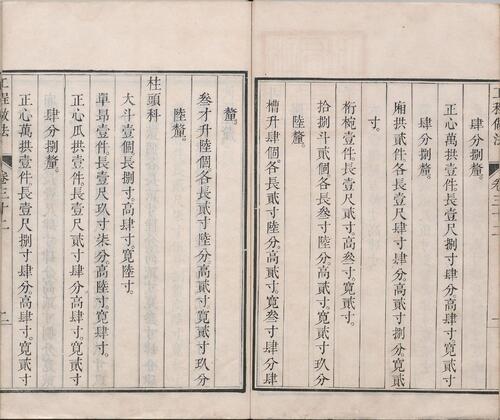 肆分捌釐。
正心萬拱壹件。長壹尺捌寸肆分。高肆寸。寬貳寸
肆分捌釐。
廂拱貳件各長壹尺肆寸肆分。高貳寸捌分寬貳
寸。
桁椀壹件。長壹尺貳寸。高陸寸。寬貳寸。
拾捌斗貳個各長叁寸陸分。高貳寸寬貳寸玖分
陸釐。
槽升肆個各長貳寸陸分。高貳寸。寬叁寸肆分肆
工程做法
卷三十二
一
釐。
叁才升陸個各長貳寸陸分。高貳寸寬貳寸玖分
陸釐。
柱頭科
大斗壹個長捌寸。高肆寸。寬陸寸。
單昂壹件。長壹尺玖寸柒分。高陸寸。寬肆寸。
正心瓜拱壹件。長壹尺貳寸肆分。高肆寸。寬貳寸
肆分捌釐。
正心萬拱壹件。長壹尺捌寸肆分。高肆寸。寬貳寸
工程做法
卷三十二
二